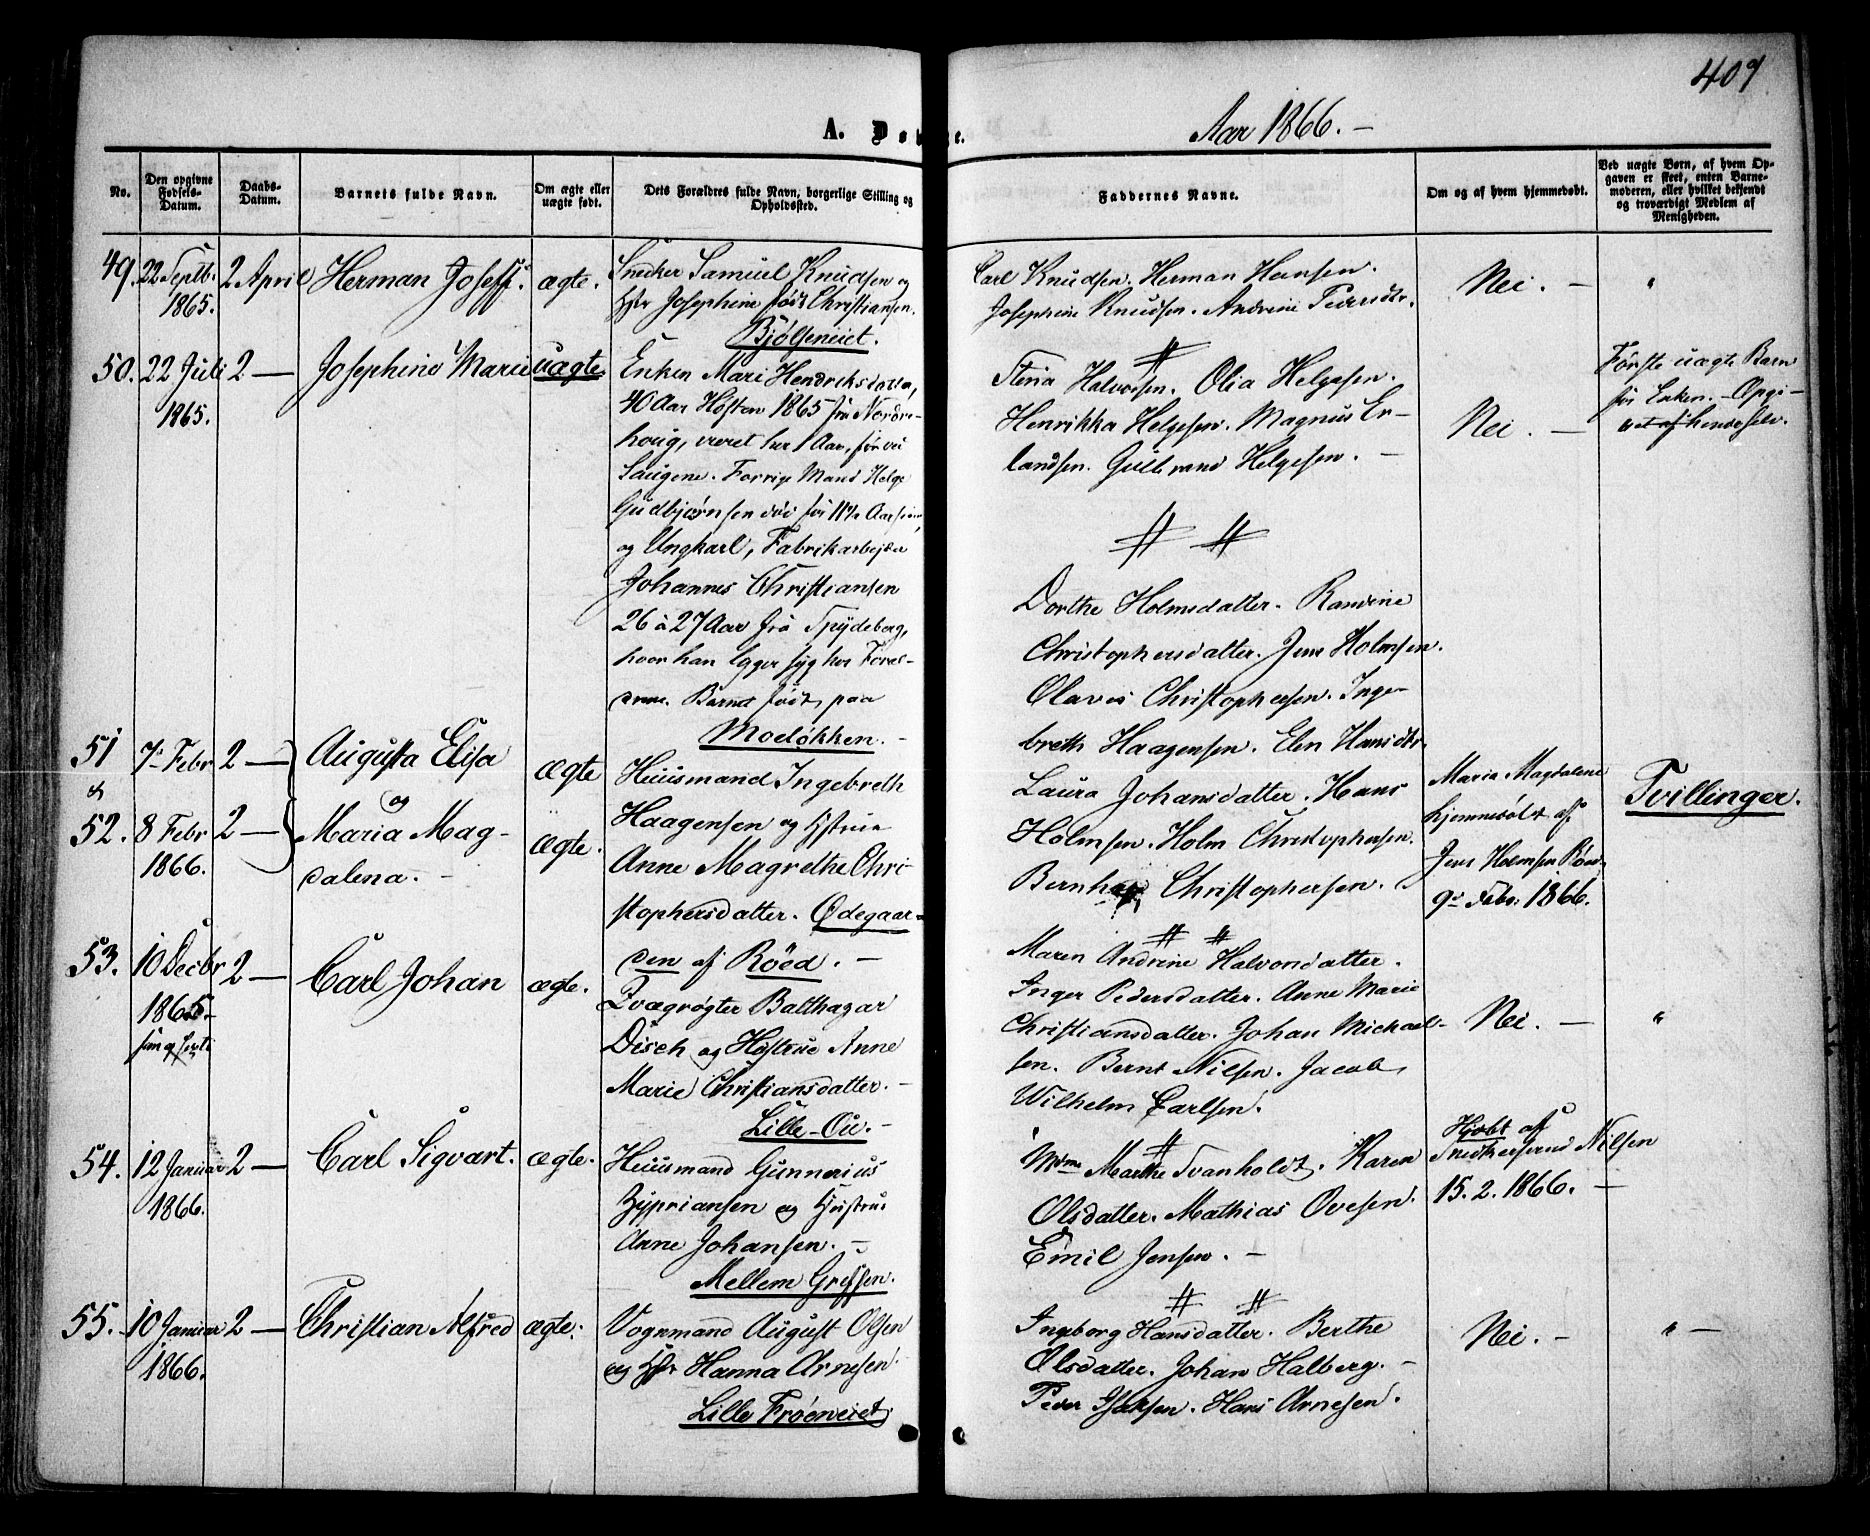 409
A. Døbte.
Aar 1866. —
No.
Den opgivne Fødsels-Datum.
Daabs-Datum.
Barnets fulde Navn.
Om ægte eller uægte født.
Dets Forældres fulde Navn, borgerlige Stilling og Opholdssted.
Faddernes Navne.
Om og af hvem hjemmedøbt.
Ved uægte Børn, af hvem Opgaven er skeet, enten Barnemoderen, eller hvilket bekjendt og troværdigt Medlem af Menigheden.
49. 22 Septb. 1865. 2 April Herman Joseff. ægte.
Snecker Samuel Knudsen og
Hstr Josephine født Christiansen.
Bjølseneiet.
Carl Knudsen. Herman Hansen.
Josephine Knudsen. Andrine Pedersdtr.
Nei. — "
50. 22 Juli 1865. 2 — Josephine Marie uægte
Enken Mari Hendriksdatter,
40 Aar Høsten 1865 fra Nordre-
houg, været her 1 Aar, før ved
Saugene. Forrige Mand Helge
Gudbjørnsen død for 11½ Aar siden,
og Ungkarl, Fabrikarbejder
Johannes Christiansen
26 à 27 Aar fra Spydeberg,
hvor han ligger syg hos Foræl-
drene. Barnet født paa
Moeløkken. —
#
Stena Halvorsen. Olia Helgesen.
Henrikka Helgesen. Magnus Er-
landsen. Gulbrand Helgesen. —
Nei. —
Første uægte Barn
for Enken. — Opgi-
vet af hende selv.
# #
51 7de Febr 2 — Augusta Elisa ægte
og
52. 8 Febr 1866. 2 — Maria Mag-
dalena. — ægte.
Huusmand Ingebreth
Haagensen og Hustrue
Anne Magrethe Chri-
stophersdatter. Ødegaar-
den af Röed. —
Dorthe Holmsdatter. Randine
Christophersdatter. Jens Holmsen.
Olaves Christophersen. Inge-
breth Haagensen. Elen Hansdtr.
Laura Johansdatter. Hans
Holmsen. Holm Christophersen.
Bernhard Christophersen.
Maria Magdalene
hjemmedøbt af
Jens Holmsen Röed
9de Febr. 1866.
Tvillinger.
53. 10 Decbr 1865. 2 — Carl Johan ægte.
Qvægrøgter Balthazar
Disch og Hustrue Anne
Marie Christiansdatter. —
Lille-Ou. —
# #
Maren Andrine Halvorsdatter.
Inger Pedersdatter. Anne Marie
Christiansdatter. Johan Michael-
sen. Bernt Nilsen. Jacob
Wilhelm Carlsen.
Nei. — "
54. 12 Januar 1866. 2 — Carl Sigvart. ægte.
Huusmand Gunnerius
Zypriansen og Hustrue
Anne Johansen. —
Mellem Grefsen.
#
Mdme Marthe Svanholdt. Karen
Olsdatter. Mathias Ovesen.
Emil Jensen. —
Hjdbt af
Snedkersvend Nilsen
15. 2. 1866. —
55. 10 Januar 1866. 2 — Christian Alfred ægte.
Vognmand August Olsen
og Hstr Hanna Arnesen.
Lille Frøeneiet.
# #
Ingeborg Hansdatter. Berthe
Olsdatter. Johan Halberg. —
Peder Isaksen. Hans Arnesen.
Nei. — " —